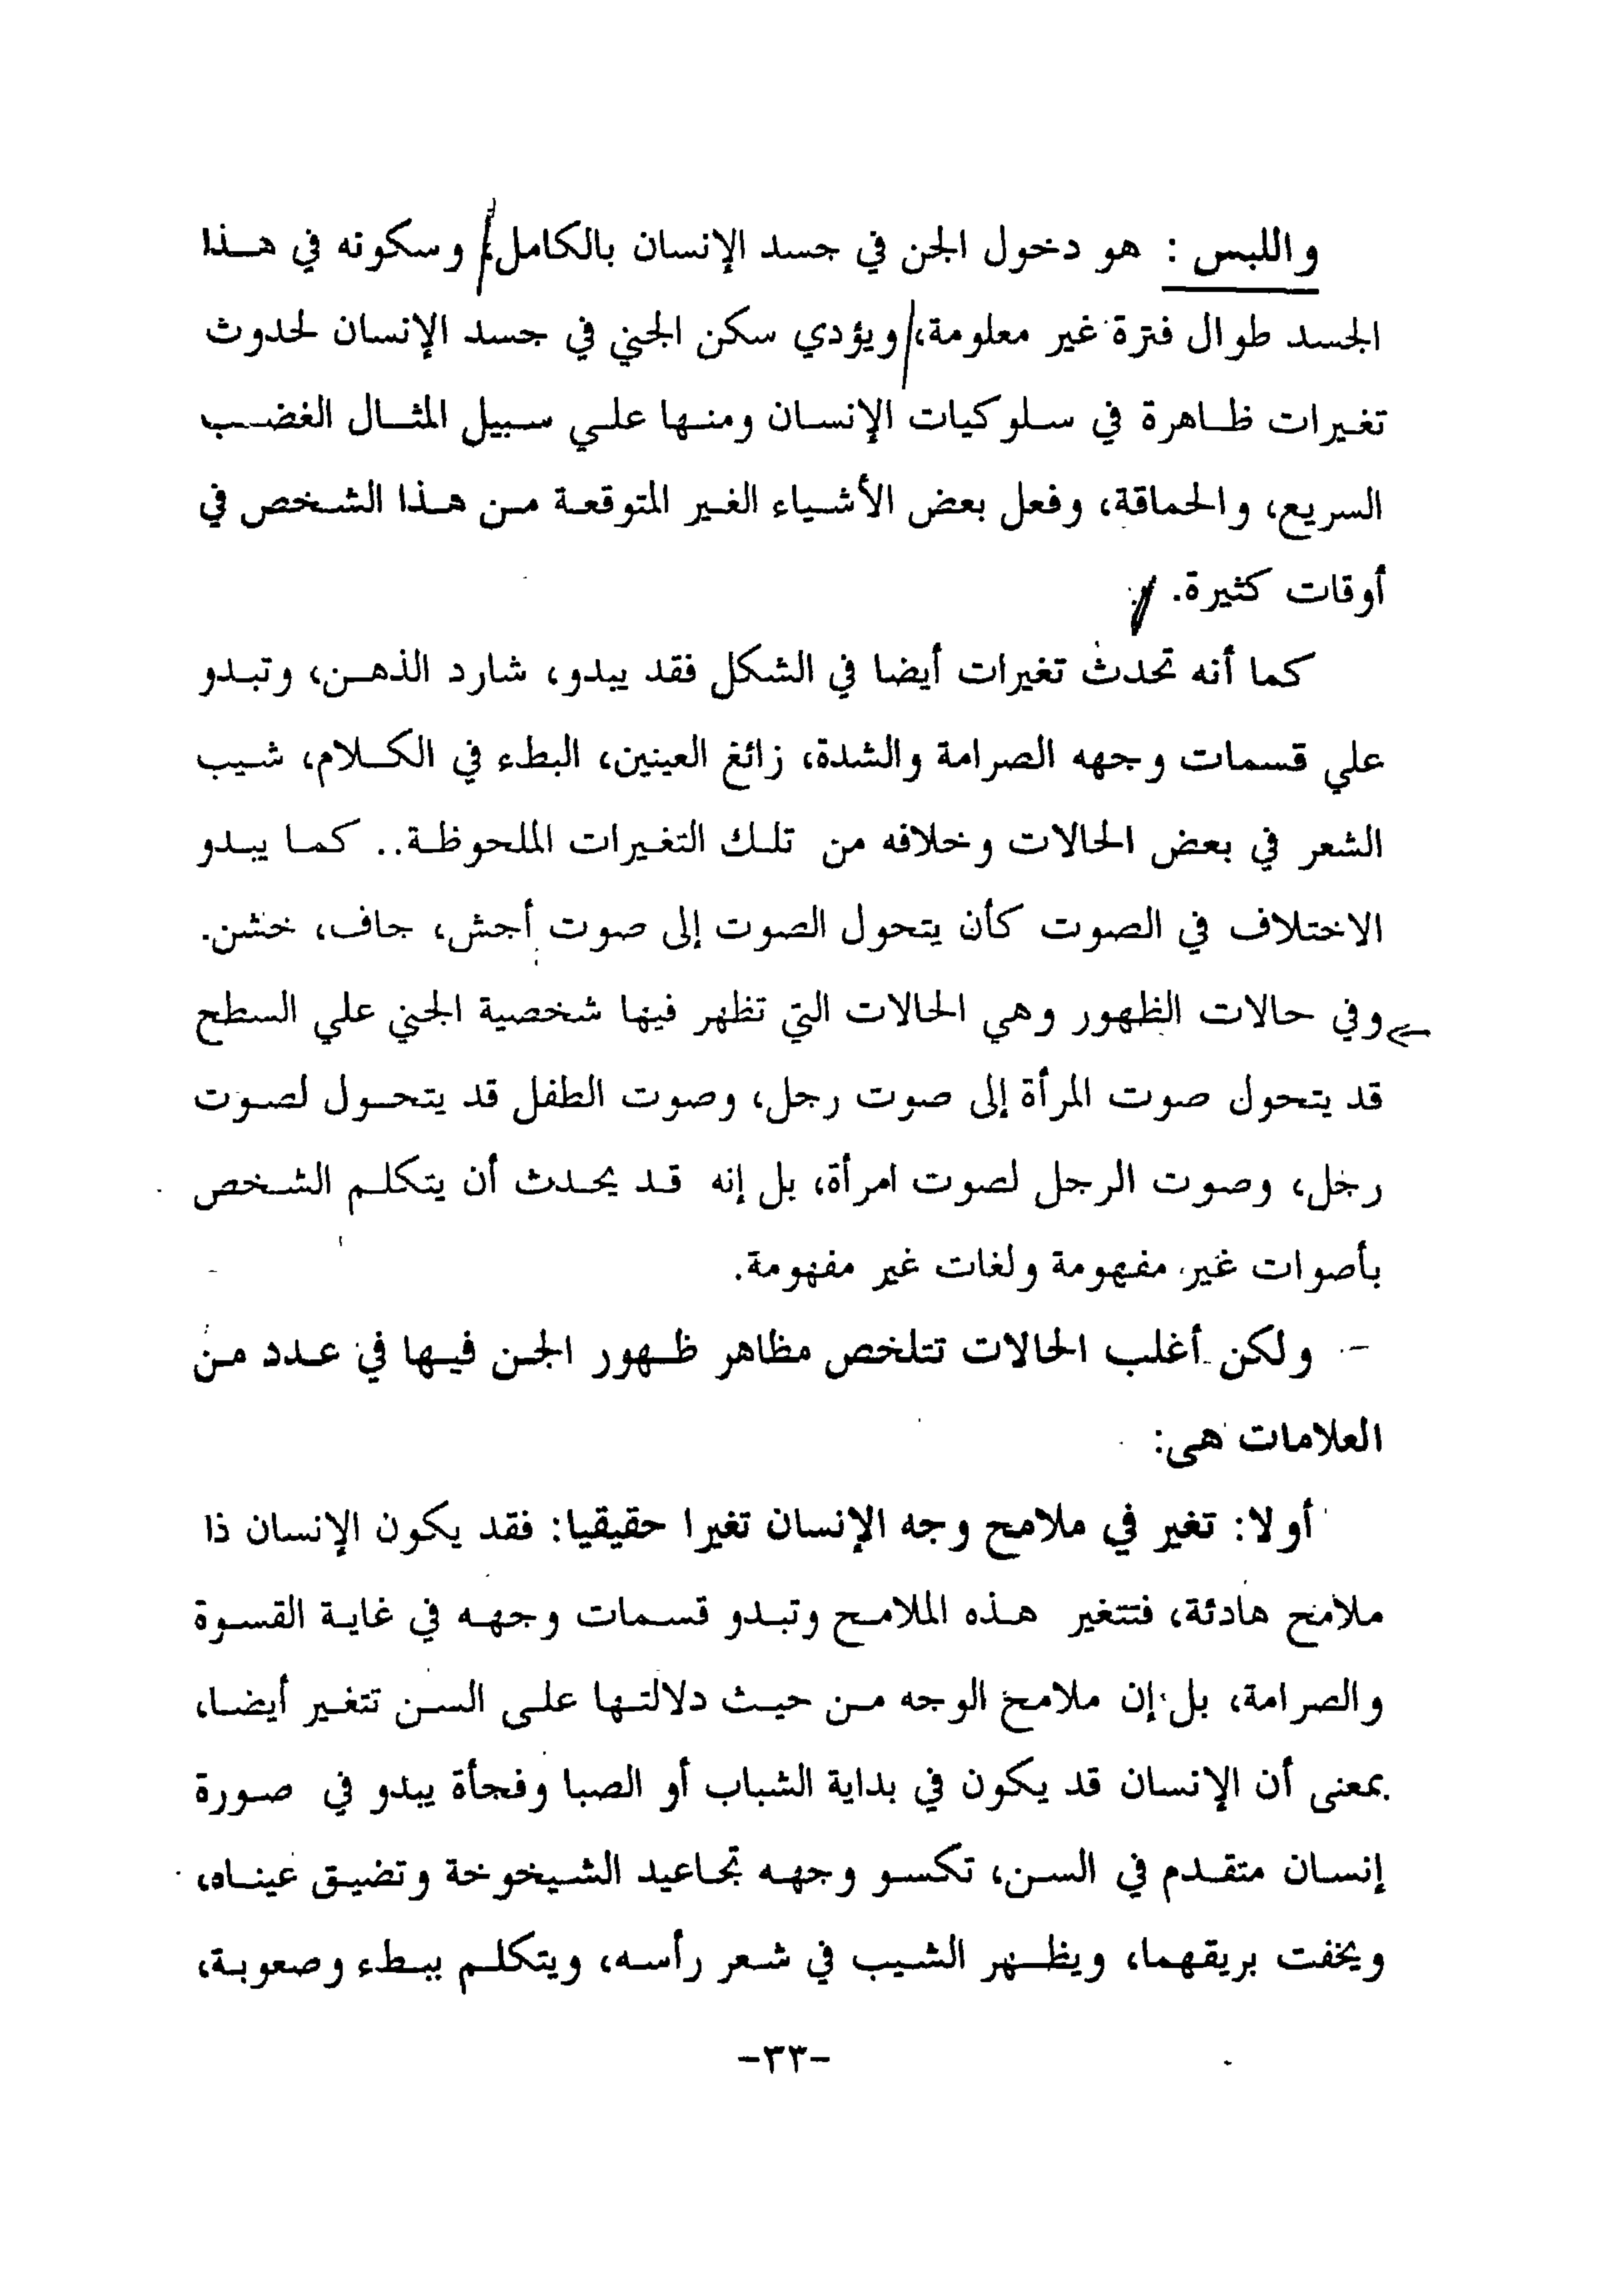 واللبس : هو دخول الجن في جسد الإنسان بالكامل، وسكونه في هذا
الجسد طوال فترة غير معلومة، ويؤدي سكن الجني في جسد الإنسان لحدوث
تغيرات ظاهرة في سلوكيات الإنسان ومنها علي سبيل المثال الغضب
السريع، والحماقة، وفعل بعض الأشياء الغير المتوقعة من هذا الشخص في
أوقات كثيرة.
كما أنه تحدث تغيرات أيضا في الشكل فقد يبدو، شارد الذهن، وتبدو
علي قسمات وجهه الصرامة والشدة، زائغ العينين، البطء في الكلام، شيب
الشعر في بعض الحالات وخلافه من تلك التغيرات الملحوظة.. كما يبدو
الاختلاف في الصوت كأن يتحول الصوت إلى صوت أجش، جاف، خشن.
وفي حالات الظهور وهي الحالات التي تظهر فيها شخصية الجني علي السطح
قد يتحول صوت المرأة إلى صوت رجل، وصوت الطفل قد يتحول لصوت
رجل، وصوت الرجل لصوت امرأة، بل إنه قد يحدث أن يتكلم الشخص
بأصوات غير مفهومة ولغات غير مفهومة.
- ولكن أغلب الحالات تتلخص مظاهر ظهور الجن فيها في عدد من
العلامات هى:
أولا: تغير في ملامح وجه الإنسان تغيرا حقيقيا: فقد يكون الإنسان ذا
ملامح هادئة، فتتغير هذه الملامح وتبدو قسمات وجهه في غاية القسوة
والصرامة، بل إن ملامح الوجه من حيث دلالتها على السن تتغير أيضا،
بمعنى أن الإنسان قد يكون في بداية الشباب أو الصبا وفجأة يبدو في صورة
إنسان متقدم في السن، تكسو وجهه تجاعيد الشيخوخة وتضيق عيناه،
ويخفت بريقهما، ويظهر الشيب في شعر رأسه، ويتكلم ببطء وصعوبة،
-٣٣-